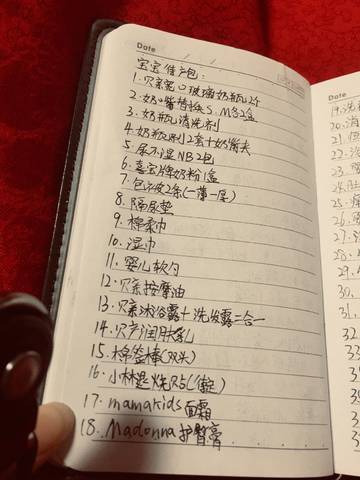 Date
宝宝待产包:
1. 贝亲宽口玻璃奶瓶2个
2. 奶嘴替换S.M各2盒
3. 奶瓶清洗剂
4. 奶瓶刷2套+奶嘴夹
5. 尿不湿NB2包
6. 喜宝牌奶粉1盒
7. 包被2条(一薄一厚)
8. 隔尿垫
9. 棉柔巾
10. 湿巾
11. 婴儿软勺
12. 贝亲按摩油
13. 贝亲沐浴露+洗发露二合一
14. 贝亲润肤乳
15. 棉签棒(双头)
16. 小林退烧贴
17. mamakids 面霜
18. Madonna护臀膏
Date
19. 洗
20. 消
21.
22. 洗
23.
24.
25.
26.
27.
28.
29.
30.
31.
32
33
34
35